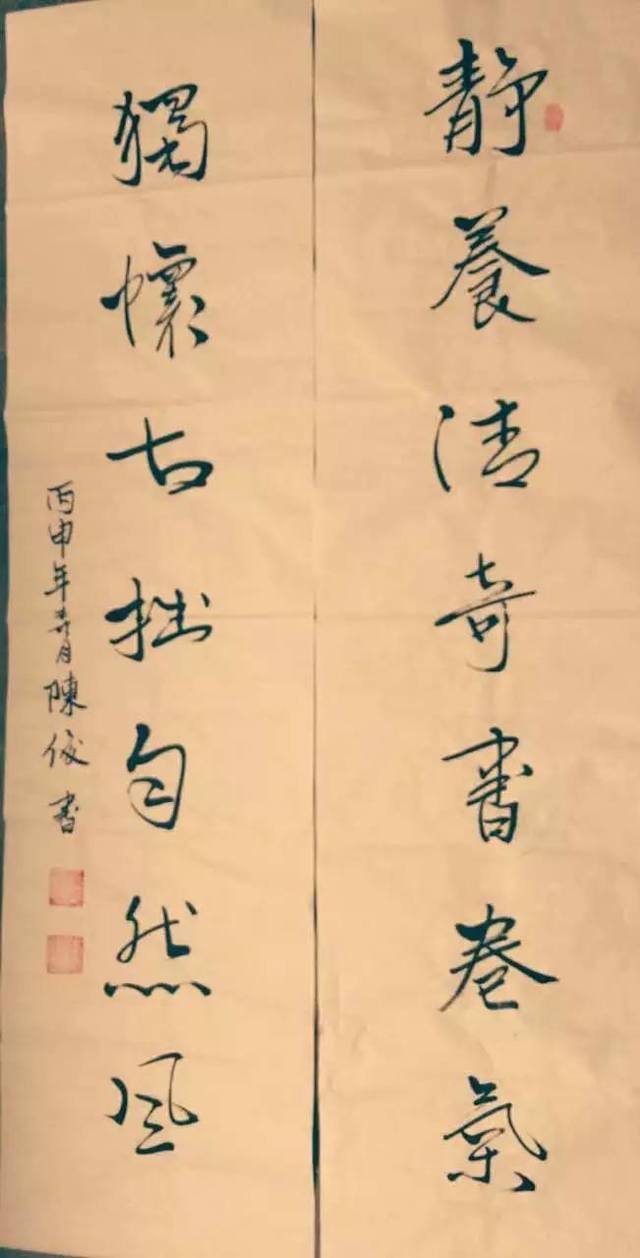 靜養清奇書卷氣
獨懷古拙自然風
丙申年春月陳俊書